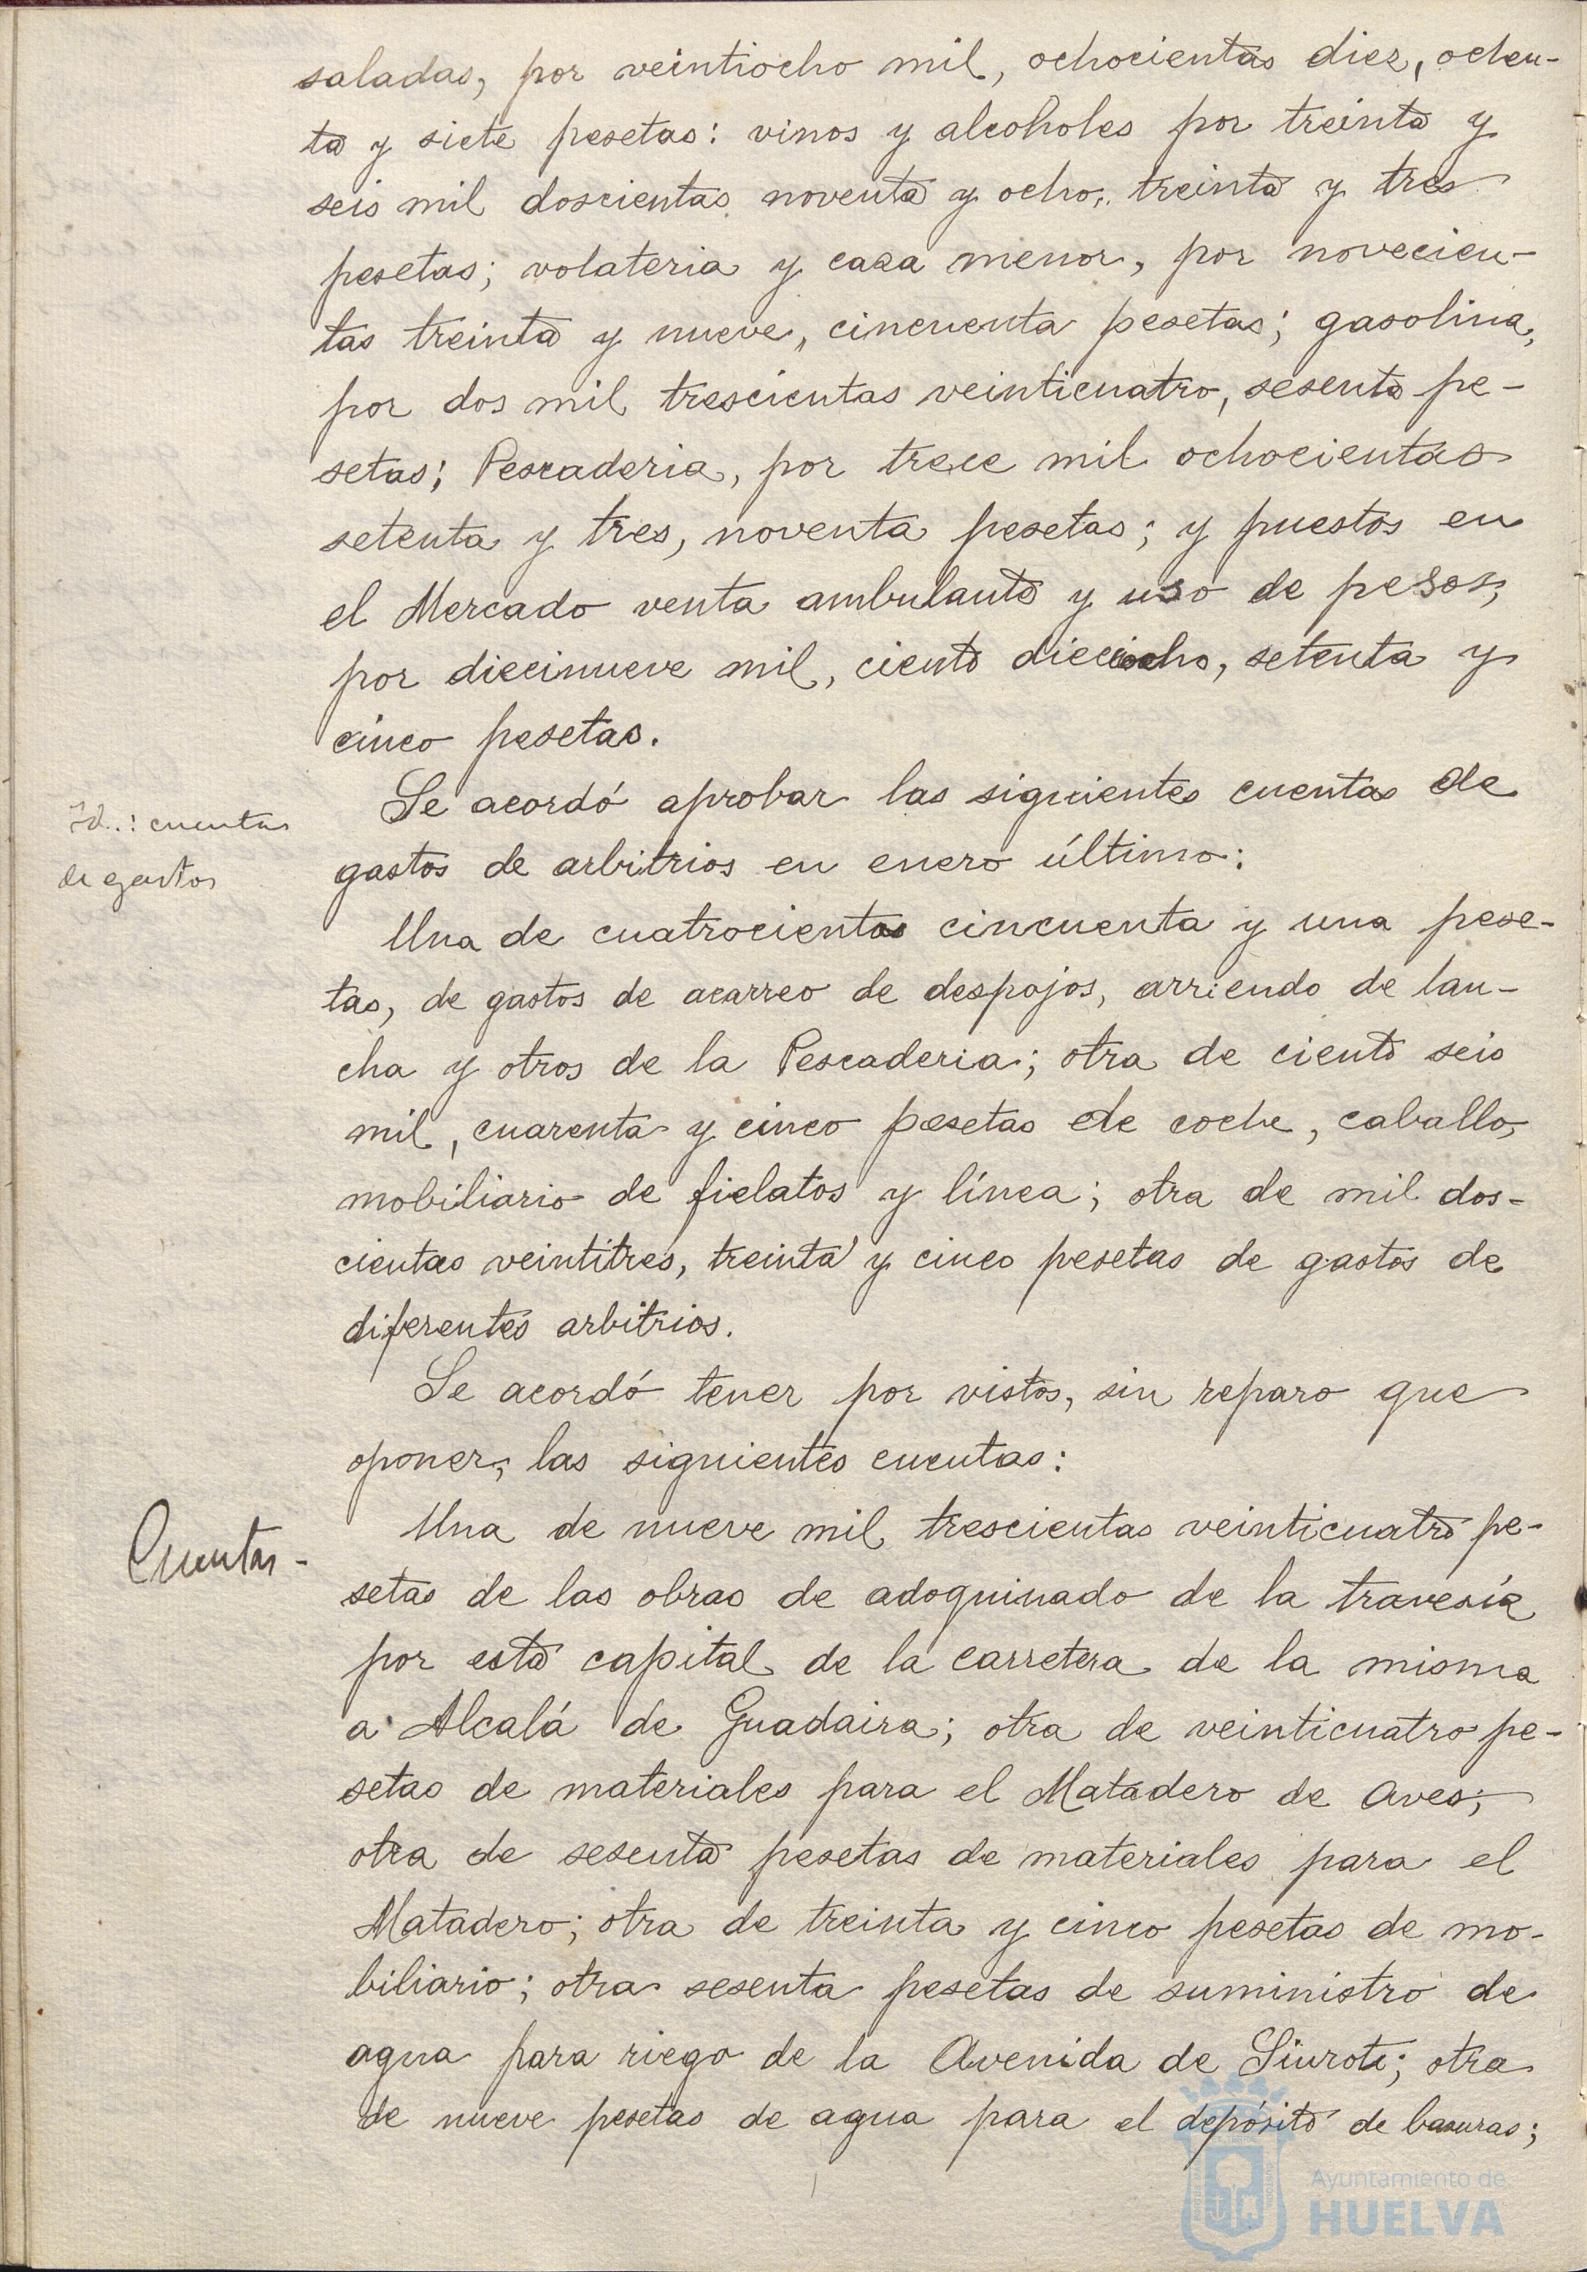 saladas, por veintiocho mil, ochocientas diez, ochen-
ta y siete pesetas: vinos y alcoholes por treinta y
seis mil doscientas noventa y ocho, treinta y tres
pesetas; volateria y caza menor, por novecien-
tas treinta y nueve, cincuenta pesetas; gasolina,
por dos mil trescientas veinticuatro, sesenta pe-
setas; Pescaderia, por trece mil ochocientas
setenta y tres, noventa pesetas; y puestos en
el Mercado venta ambulante y uso de pesos,
por diecinueve mil, ciento dieciocho, setenta y
cinco pesetas.
Id.: cuentas
de gastos
Se acordó aprobar las siguientes cuentas de
gastos de arbitrios en enero último:
Una de cuatrocientas cincuenta y una pese-
tas, de gastos de acarreo de despojos, arriendo de lan-
cha y otros de la Pescaderia; otra de ciento seis
mil, cuarenta y cinco pesetas de coche, caballo,
mobiliario de fielatos y línea; otra de mil dos-
cientas veintitres, treinta y cinco pesetas de gastos de
diferentes arbitrios.
Se acordó tener por vistos, sin reparo que
oponer, las siguientes cuentas:
Cuentas-
Una de nueve mil trescientas veinticuatro pe-
setas de las obras de adoquinado de la travesía
por esta capital de la carretera de la misma
a Alcalá de Guadaira; otra de veinticuatro pe-
setas de materiales para el Matadero de Aves;
otra de sesenta pesetas de materiales para el
Matadero; otra de treinta y cinco pesetas de mo-
biliario; otra sesenta pesetas de suministro de
agua para riego de la Avenida de Siurot; otra
de nueve pesetas de agua para el depósito de basuras;
Ayuntamiento de
HUELVA